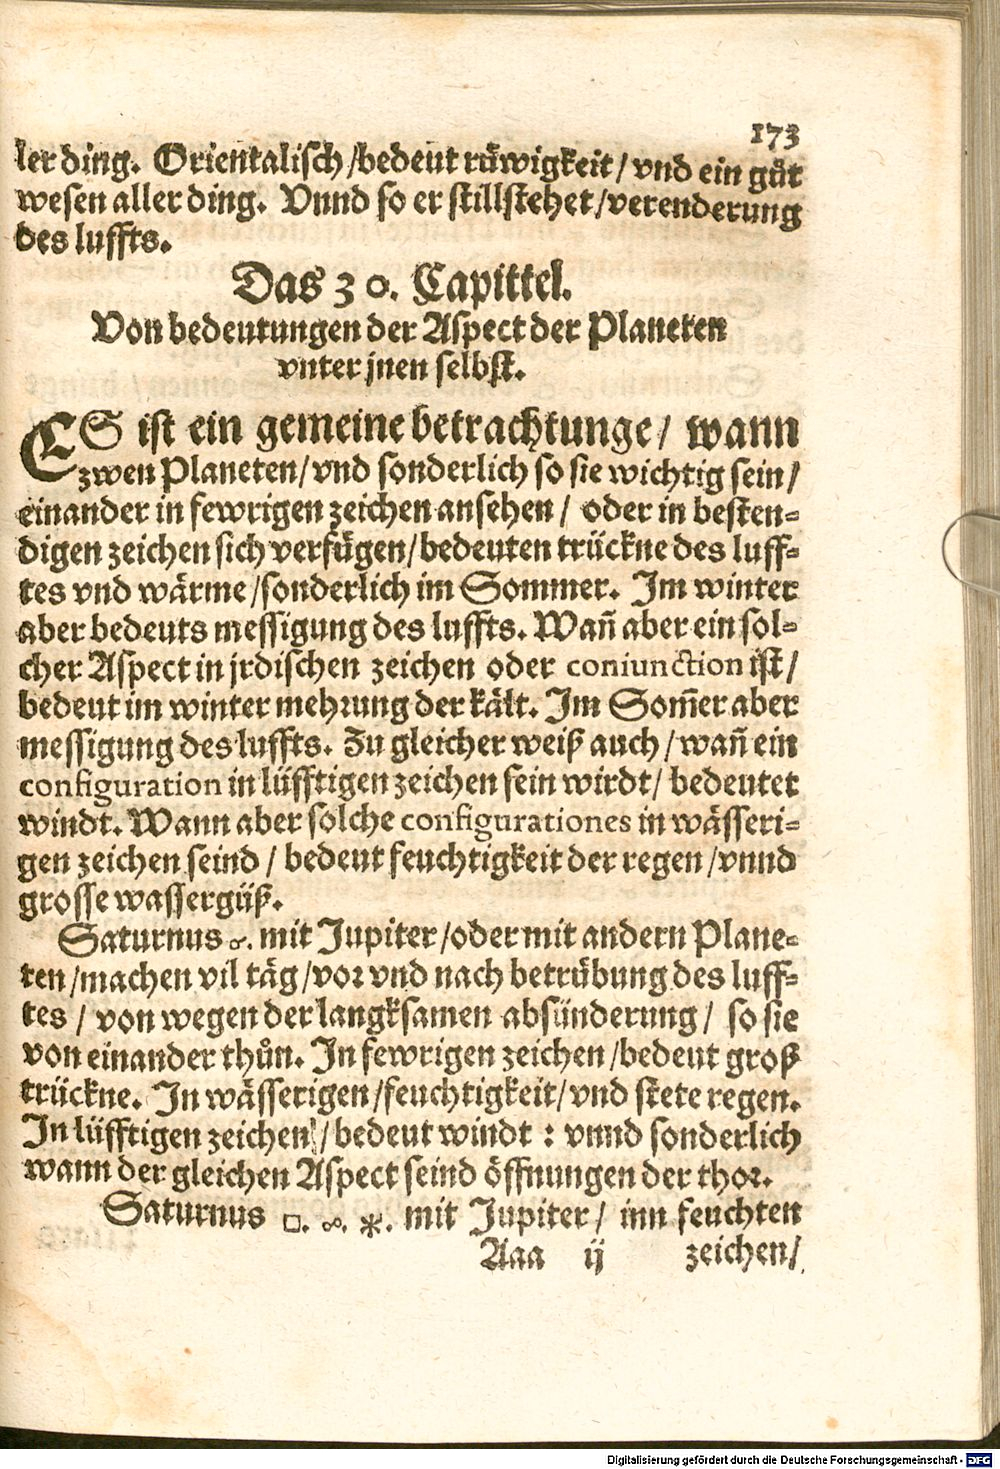 173
ler ding. Orientalisch/bedeut rüwigkeit/vnd ein gůt
wesen aller ding. Vnnd so er stillstehet/verenderung
des luffts.
Das 30. Capittel.
Von bedeutungen der Aspect der Planeten
vnter jnen selbst.
ES ist ein gemeine betrachtunge/ wann
zwen Planeten/vnd sonderlich so sie wichtig sein/
einander in fewrigen zeichen ansehen/ oder in besten-
digen zeichen sich verfügen/bedeuten trückne des luff-
tes vnd wärme/sonderlich im Sommer. Im winter
aber bedeuts messigung des luffts. Wañ aber ein sol-
cher Aspect in jrdischen zeichen oder coniunction ist/
bedeut im winter mehrung der kält. Im Som̃er aber
messigung des luffts. Zu gleicher weiß auch/wañ ein
configuration in lüfftigen zeichen sein wirdt/ bedeutet
windt. Wann aber solche configurationes in wässeri-
gen zeichen seind/ bedeut feuchtigkeit der regen/vnnd
grosse wassergüß.
Saturnus ☌. mit Jupiter/oder mit andern Plane-
ten/machen vil täg/vor vnd nach betrübung des luff-
tes/ von wegen der langksamen absünderung/ so sie
von einander thůn. In fewrigen zeichen/bedeut groß
trückne. In wässerigen/feuchtigkeit/vnd stete regen.
In lüfftigen zeichen/bedeut windt: vnnd sonderlich
wann der gleichen Aspect seind öffnungen der thor.
Saturnus □. ☍. ⚹. mit Jupiter/ inn feuchten
Aaa ij zeichen/
Digitalisierung gefördert durch die Deutsche Forschungsgemeinschaft - DFG